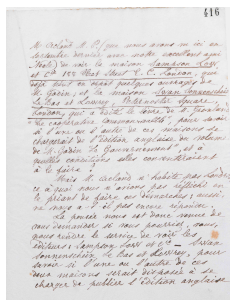 416
M. Acland M. P. (que nous avons vu ici en
septembre dernier avec notre excellent ami
de voir la maison Sampson Low
et Cie 188 Fleet Street E. C. London, que
déjà tout en ayant quelques ouvrages de
M. Godin, et la maison Swan Sonnenschein
Le Bas et Lowrey, Paternoster Square,
London, qui a édité le livre de
"Co-operative Commonwealth", pour savoir
si l'une ou l'autre de ces maisons se
chargerait de l'édition anglaise du volume
de M. Godin "Le Gouvernement", et à
quelles conditions elles consentiraient
à le faire?
Mais M. Acland n'habite pas Londres
ce à quoi nous n'avions pas réfléchi en
le priant de faire ces démarches, aussi
ne nous a-t-il pas encore répondu.
La pensée nous est donc venue de
vous demander si vous pourriez, vous,
nous rendre le service de voir les
éditeurs Sampson, Low et Cie - Swan
Sonnenschein, Le Bas et Lowrey, pour
savoir si l'une ou l'autre de ces
deux maisons serait disposée à se
charger de publier l'édition anglaise